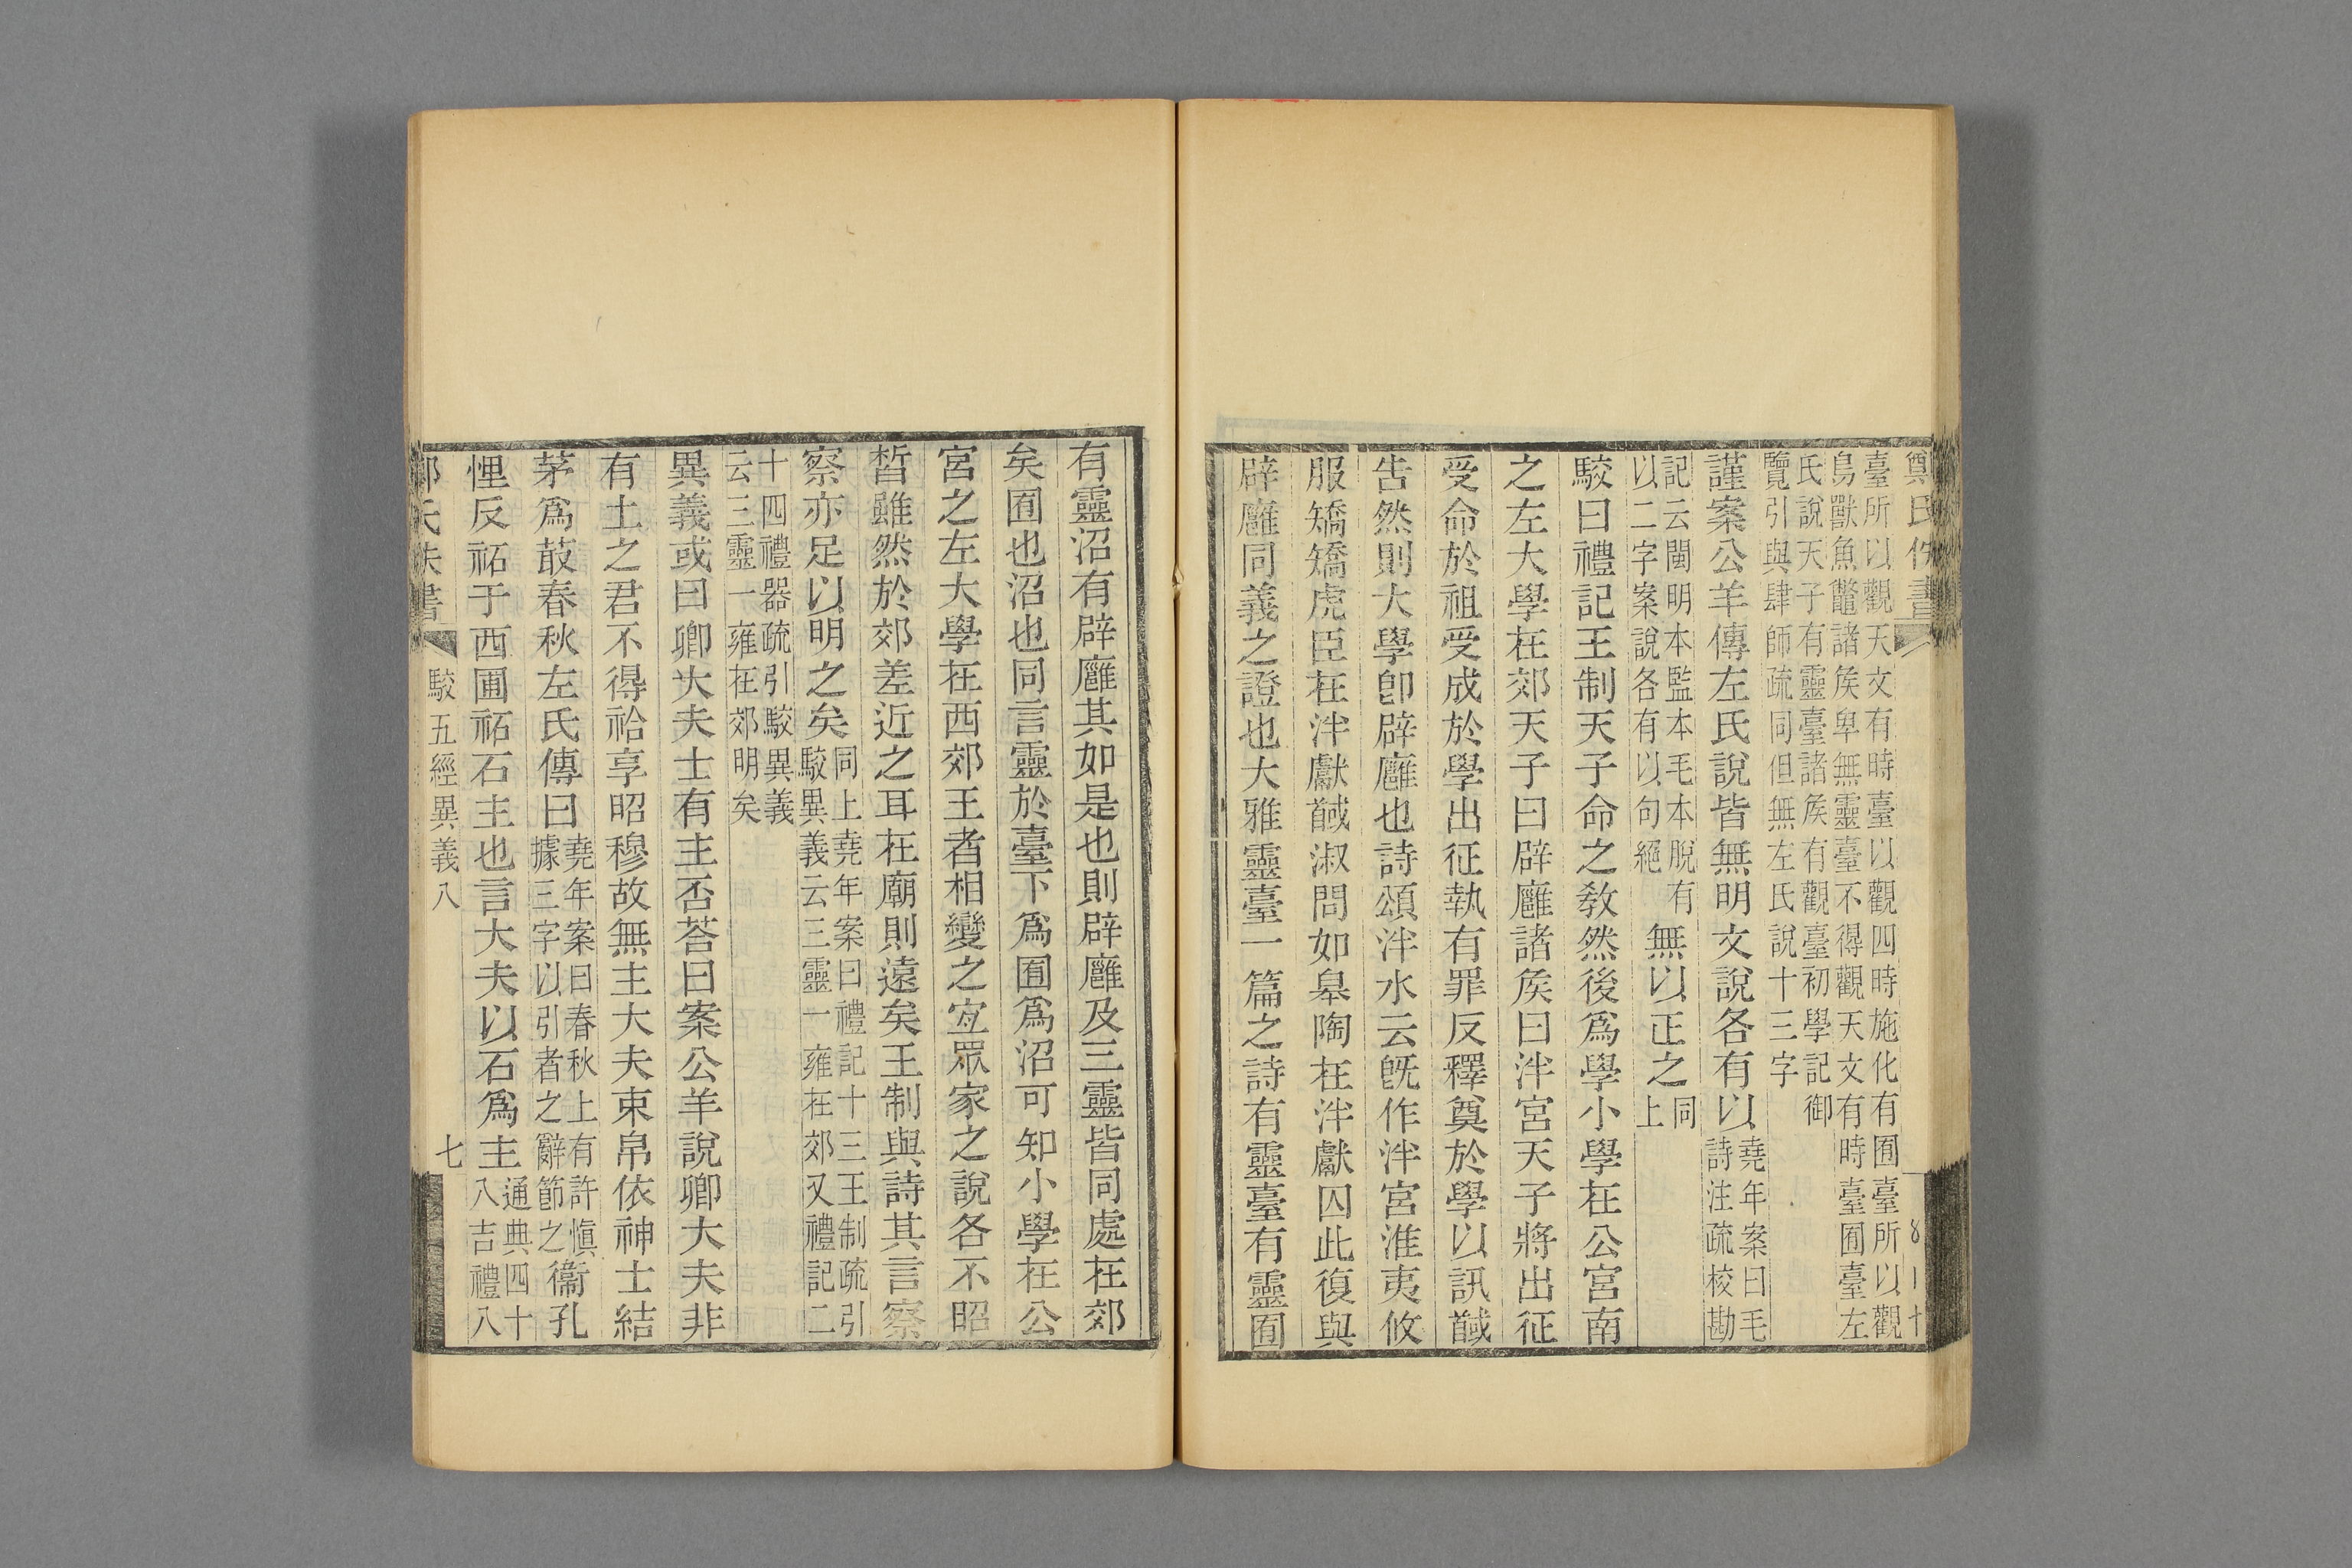 鄭氏佚書
臺所以觀天文有時臺以觀四時施化有囿臺所以觀
鳥獸魚鼈諸矦卑無靈臺不得觀天文有時臺囿臺左
氏說天子有靈臺諸矦有觀臺初學記御
覽引與肆師疏同但無左氏說十三字
謹案公羊傳左氏說皆無明文說各有以堯年案曰毛
詩注疏校勘
記云閩明本監本毛本脫有
以二字案說各有以句絕
無以正之同上
駮曰禮記王制天子命之敎然後爲學小學在公宮南
之左大學在郊天子曰辟廱諸矦曰泮宮天子將出征
受命於祖受成於學出征執有罪反釋奠於學以訊馘
告然則大學卽辟廱也詩頌泮水云旣作泮宮淮夷攸
服矯矯虎臣在泮獻馘淑問如皋陶在泮獻囚此復與
辟廱同義之證也大雅靈臺一篇之詩有靈臺有靈囿
有靈沼有辟廱其如是也則辟廱及三靈皆同處在郊
矣囿也沼也同言靈於臺下爲囿爲沼可知小學在公
宮之左大學在西郊王者相變之宐眾家之說各不昭
晢雖然於郊差近之耳在廟則遠矣王制與詩其言察
察亦足以明之矣同上堯年案曰禮記十三王制疏引
駮異義云三靈一雍在郊又禮記二
十四禮器疏引駮異義
云三靈一雍在郊明矣
異義或曰卿大夫士有主否荅曰案公羊說卿大夫非
有土之君不得祫享昭穆故無主大夫束帛依神士結
茅爲菆春秋左氏傳曰堯年案曰春秋上有許愼
據三字以引者之辭節之
衞孔
悝反祏于西圃祏石主也言大夫以石爲主通典四十
八吉禮八
駮五經異義八
七